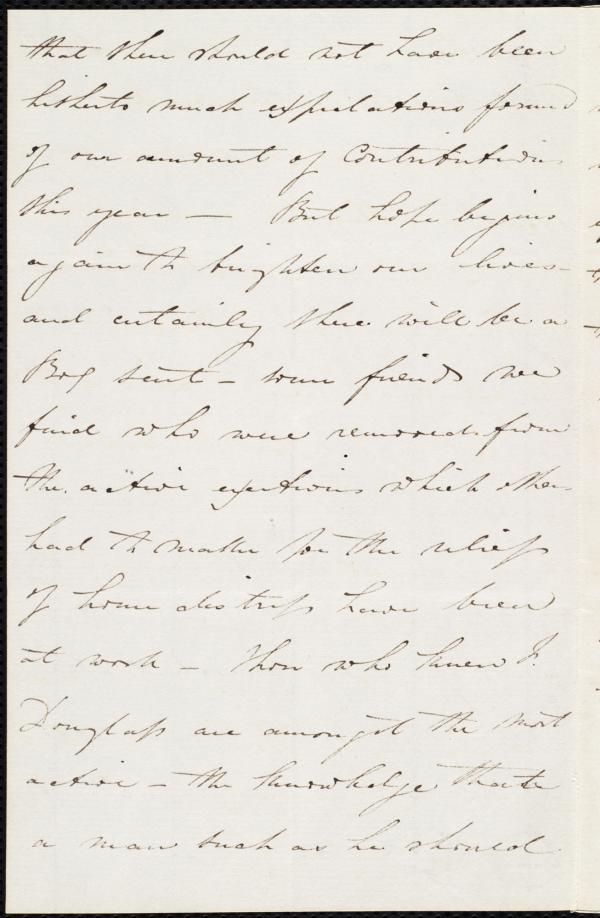 that there should not have been
hitherto much expectations formed
of our amount of Contributions
this year — But hope begins
again to brighten our lives -
and certainly there will be a
Box sent - some friends we
find who were removed from
the active exertions which others
had to make for the relief
of home distress have been
at work - Those who knew F.
Douglass are amongst the most
active - the knowledge that
a man such as he should